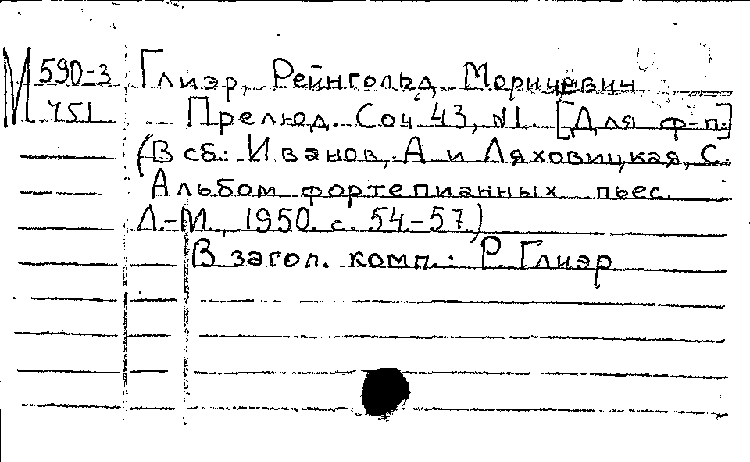 М 590-3 Глиэр, Рейнгольд Морицевич
751 Прелюд. Соч. 43, №1. [Для ф-п.]
(В сб.: Иванов, А и Ляховицкая, С.
Альбом фортепианных пьес.
Л.-М., 1950. с. 54-57.)
В загол. комп.: Р Глиэр